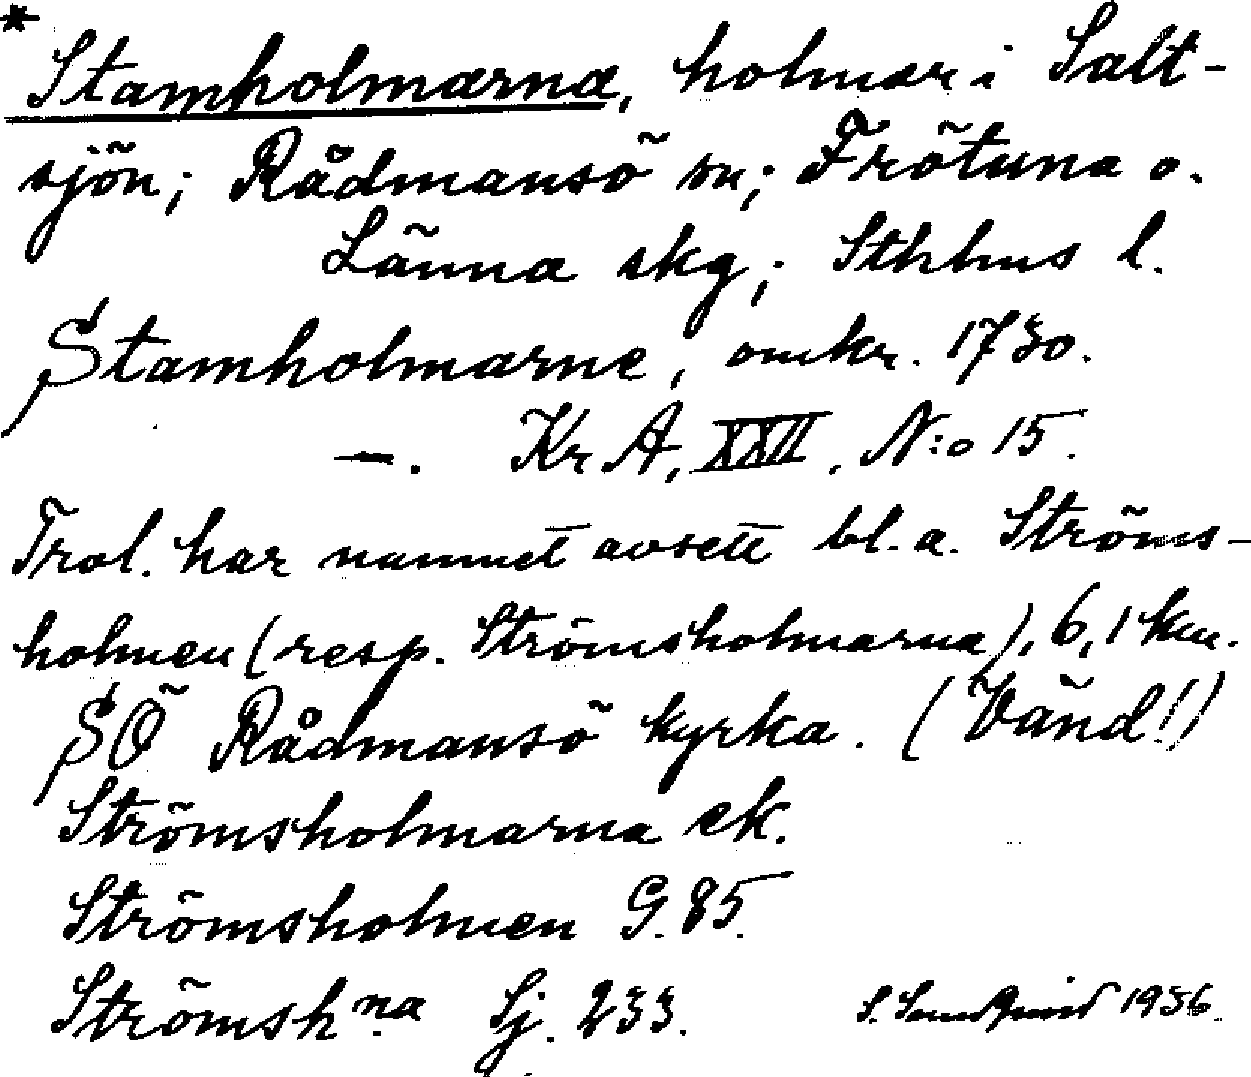 * Stamholmarna, holmar i Salt-
sjön; Rådmansö sn; Frötuna o.
Länna skg; Sthlms l.
Stamholmarne, omkr. 1730.
—. Kr A, XXII, N:o 15.
Trol. har namnet avsett bl. a. Ströms-
holmen (resp. Strömsholmarna), 6,1 km.
SÖ Rådmansö kyrka. (Vänd!)
Strömsholmarna ek.
Strömsholmen G. 85.
Strömsh.na Sj. 233.
1936.